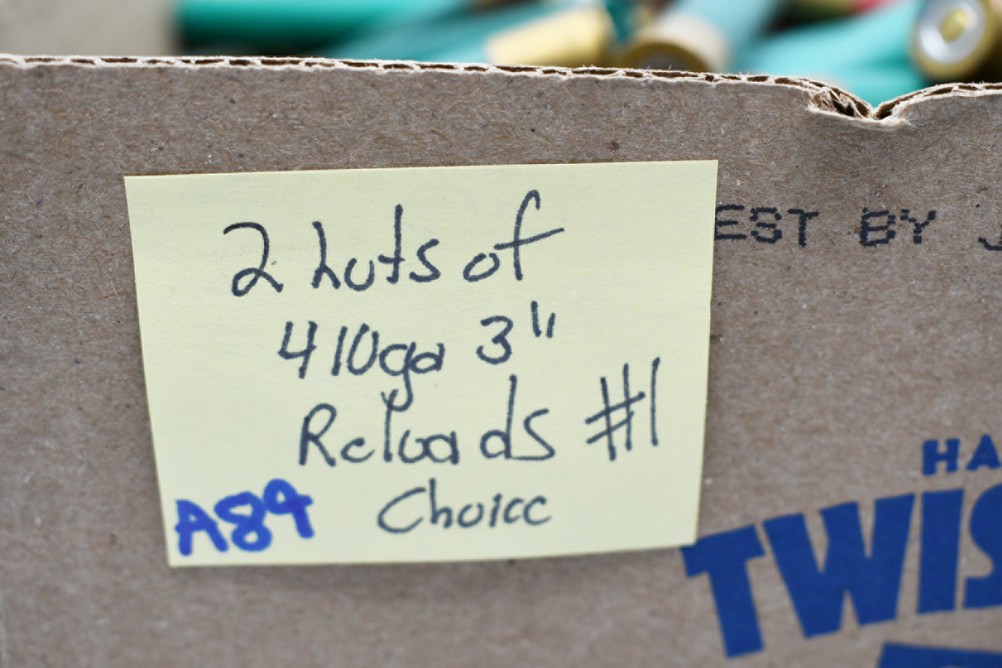 2 Lots of
410ga 3"
Reloads #1
Choice
A89
EST BY J
HA
TWIS